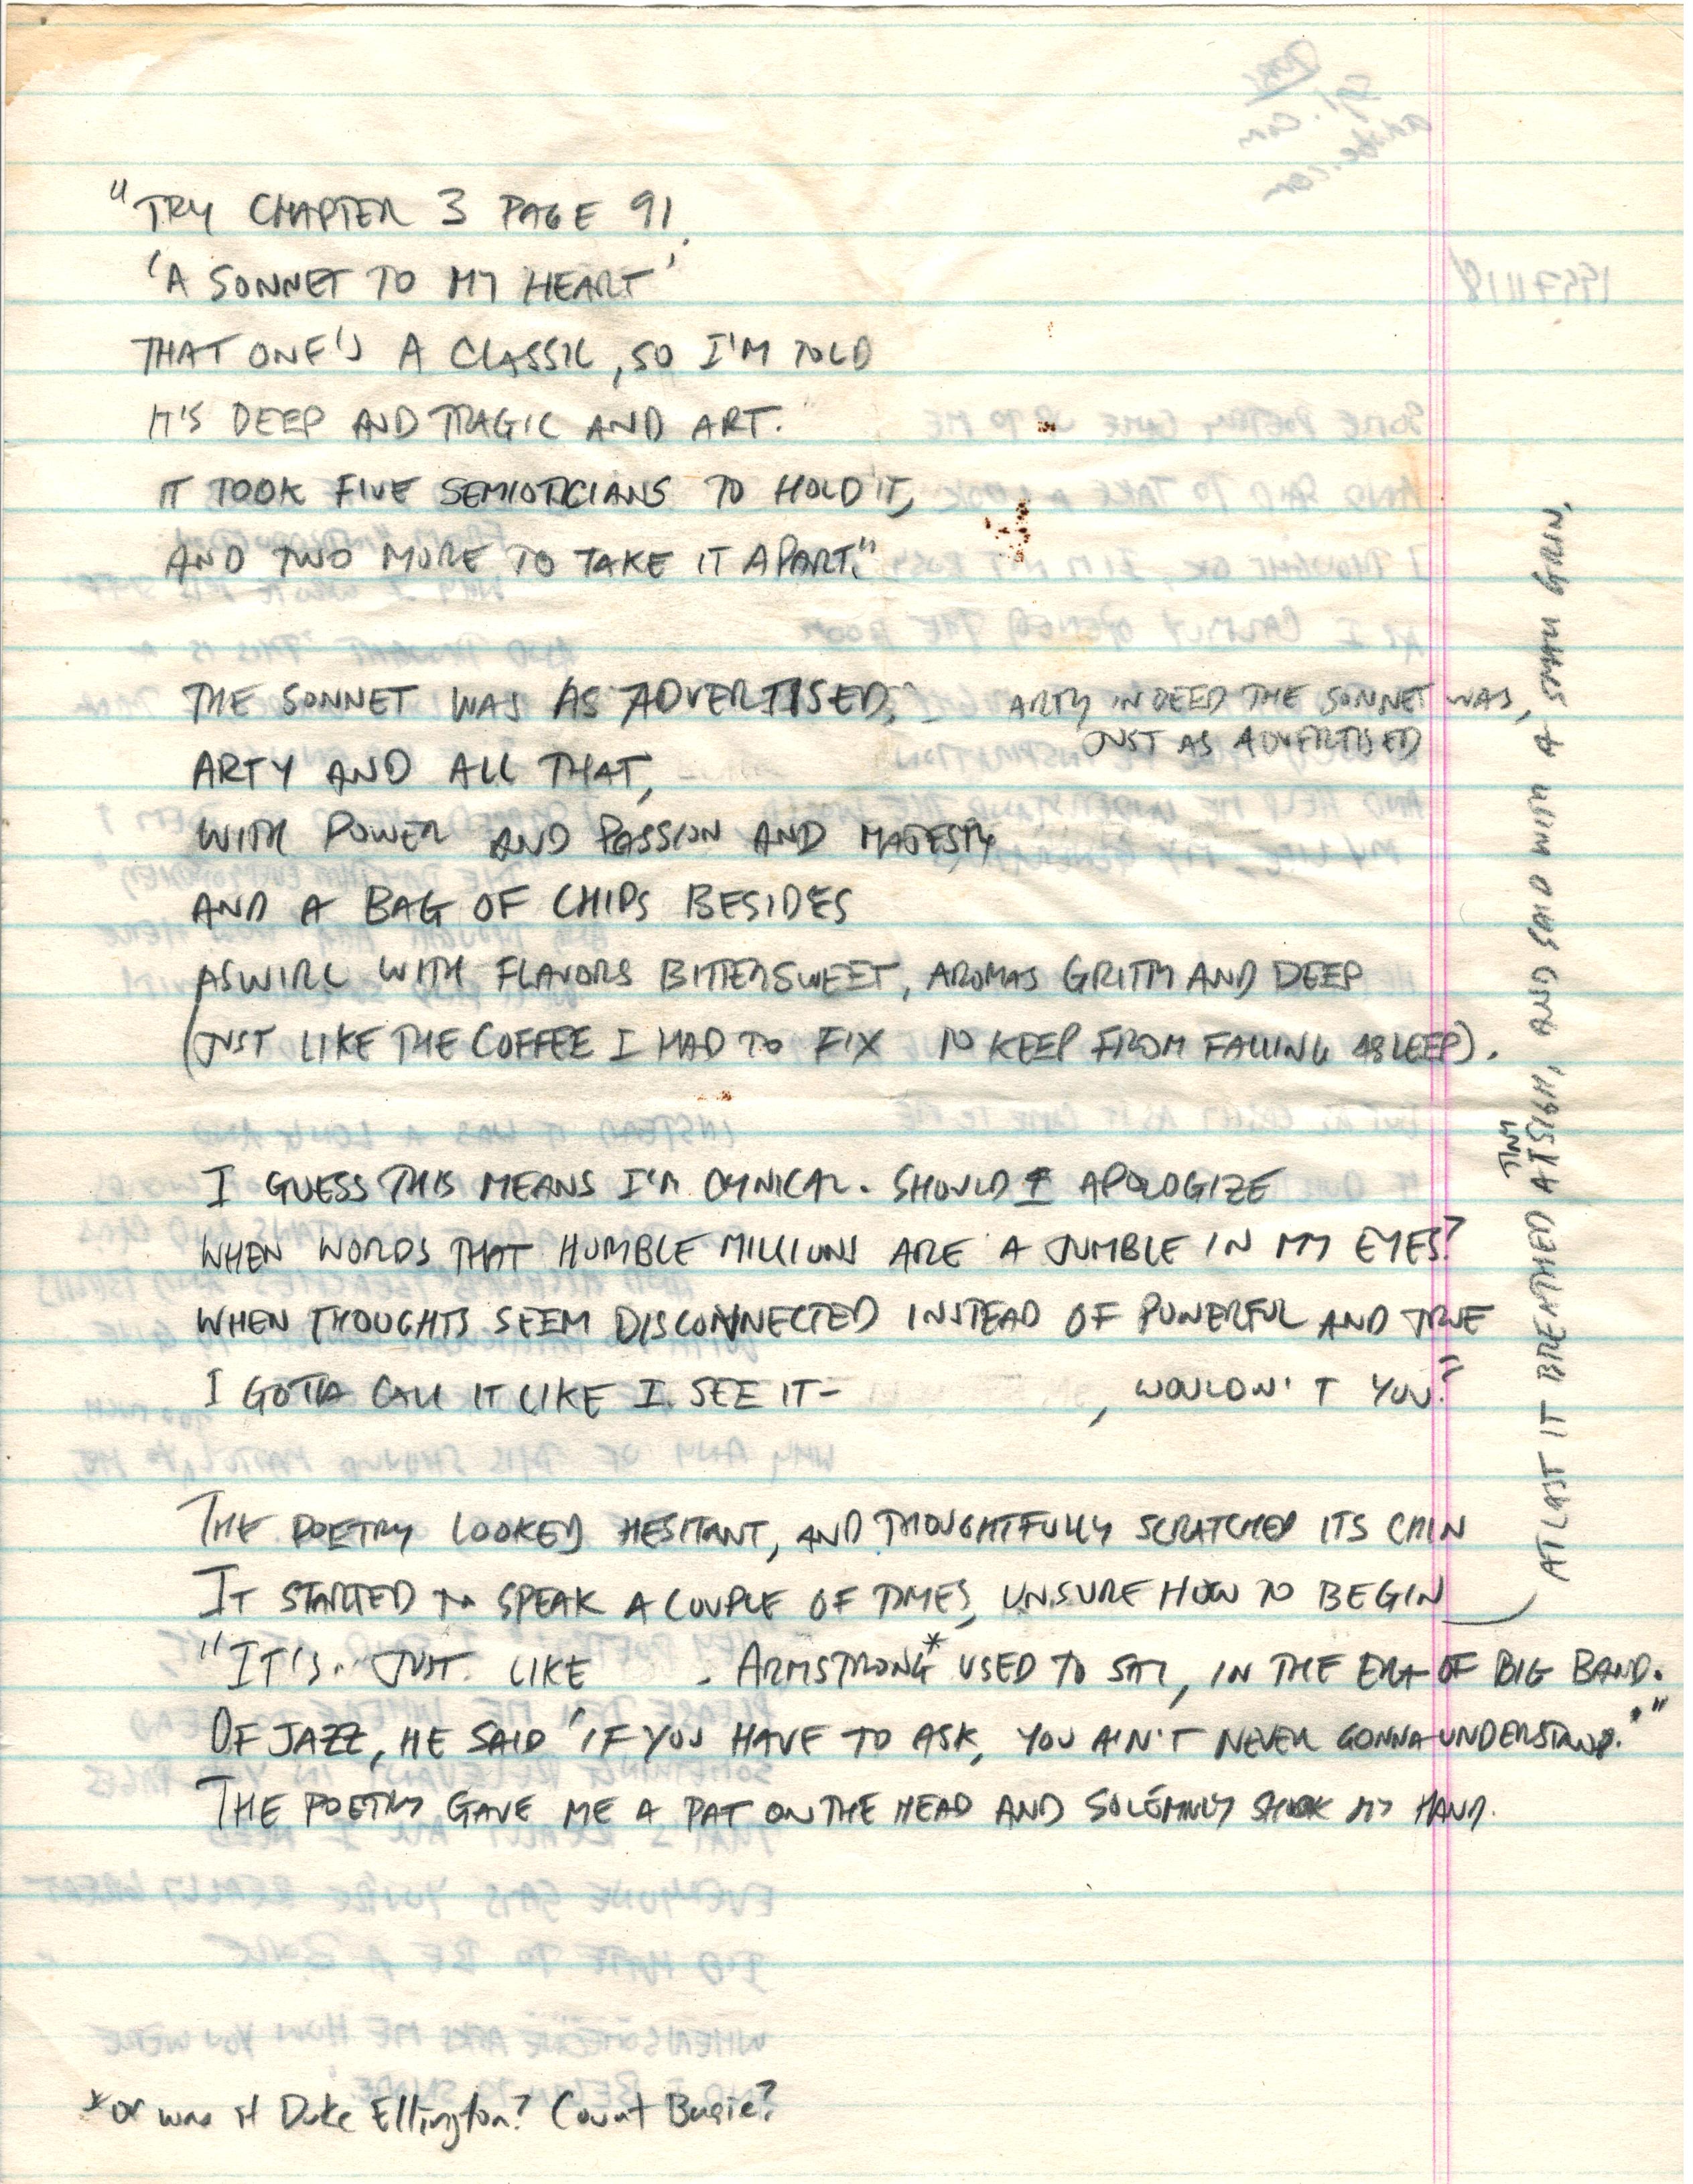 "TRY CHAPTER 3 PAGE 91.
'A SONNET TO MY HEART'
THAT ONE'S A CLASSIC, SO I'M TOLD
IT'S DEEP AND TRAGIC AND ART.
IT TOOK FIVE SEMIOTICIANS TO HOLD IT,
AND TWO MORE TO TAKE IT APART."
THE SONNET WAS AS ADVERTISED,
ARTY INDEED THE SONNET WAS,
JUST AS ADVERTISED
ARTY AND ALL THAT,
WITH POWER AND PASSION AND MAJESTY
AND A BAG OF CHIPS BESIDES
ASWIRL WITH FLAVORS BITTERSWEET, AROMAS GRITTY AND DEEP
(JUST LIKE THE COFFEE I HAD TO FIX TO KEEP FROM FALLING ASLEEP).
I GUESS THIS MEANS I'M CYNICAL. SHOULD I APOLOGIZE
WHEN WORDS THAT HUMBLE MILLIONS ARE A JUMBLE IN MY EYES?
WHEN THOUGHTS SEEM DISCONNECTED INSTEAD OF POWERFUL AND TRUE
I GOTTA CALL IT LIKE I SEE IT- , WOULDN'T YOU?"
THE POETRY LOOKED HESITANT, AND THOUGHTFULLY SCRATCHED ITS CHIN
IT STARTED TO SPEAK A COUPLE OF TIMES, UNSURE HOW TO BEGIN
AT LAST IT BREATHED A TINY SIGH, AND SAID WITH A SMALL GRIN,
"IT'S.. JUST. LIKE . ARMSTRONG* USED TO SAY, IN THE ERA OF BIG BAND.
OF JAZZ, HE SAID 'IF YOU HAVE TO ASK, YOU AIN'T NEVER GONNA UNDERSTAND.'"
THE POETRY GAVE ME A PAT ON THE HEAD AND SOLEMNLY SHOOK MY HAND.
*or was it Duke Ellington? Count Basie?